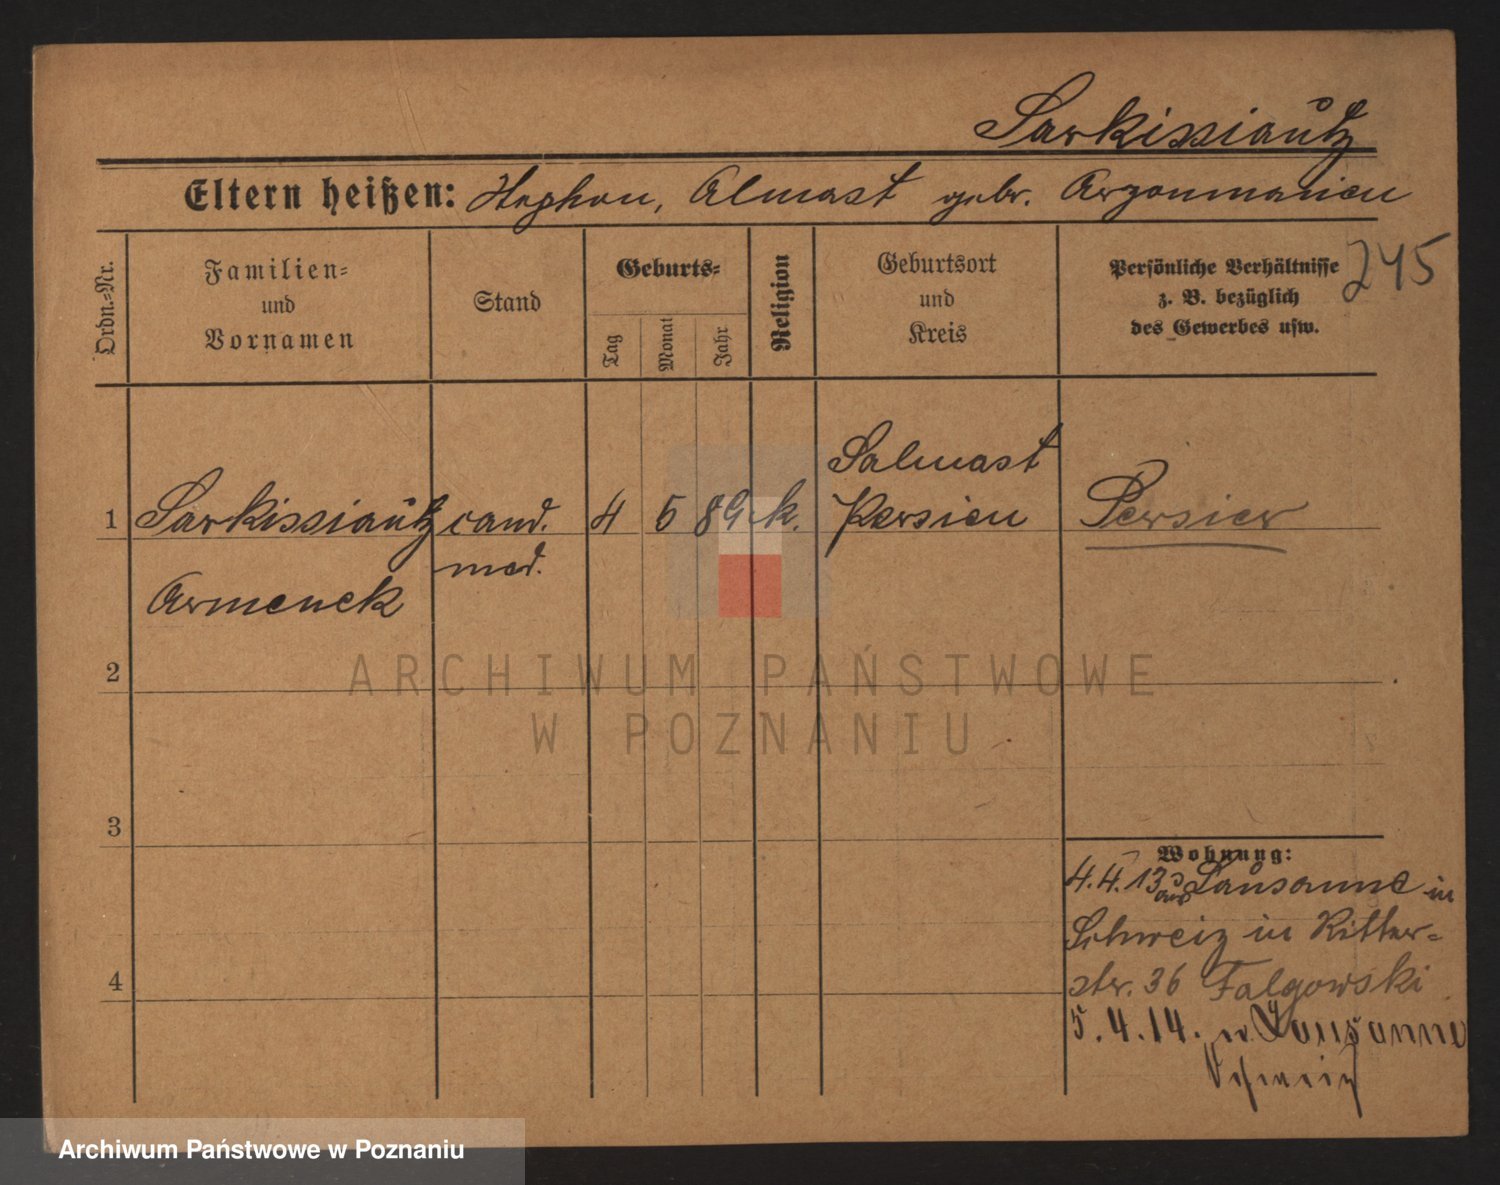 Sarkissiautz
Eltern heißen: Stephan, Almast gebr. Argoumanien
Ordn.-Nr.
Familien-
und
Vornamen
Stand
Geburts-
Tag
Monat
Jahr
Religion
Geburtsort
und
Kreis
Persönliche Verhältnisse
z. B. bezüglich
des Gewerbes usw.
245
1 Sarkissiautz cand. 4 5 89 k. Salmast
med. Persien
Persier
Armenek
2
3
4
Wohnung:
4.4.13 aus Lausanne in
Schweiz in Ritter-
str. 36 Falgowski
5.4.14. n. Lausanne
Schweiz
ARCHIWUM PAŃSTWOWE
W POZNANIU
Archiwum Państwowe w Poznaniu